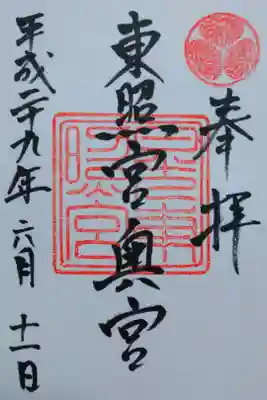 奉拝
東照宮奥宮
平成二十九年六月十一日